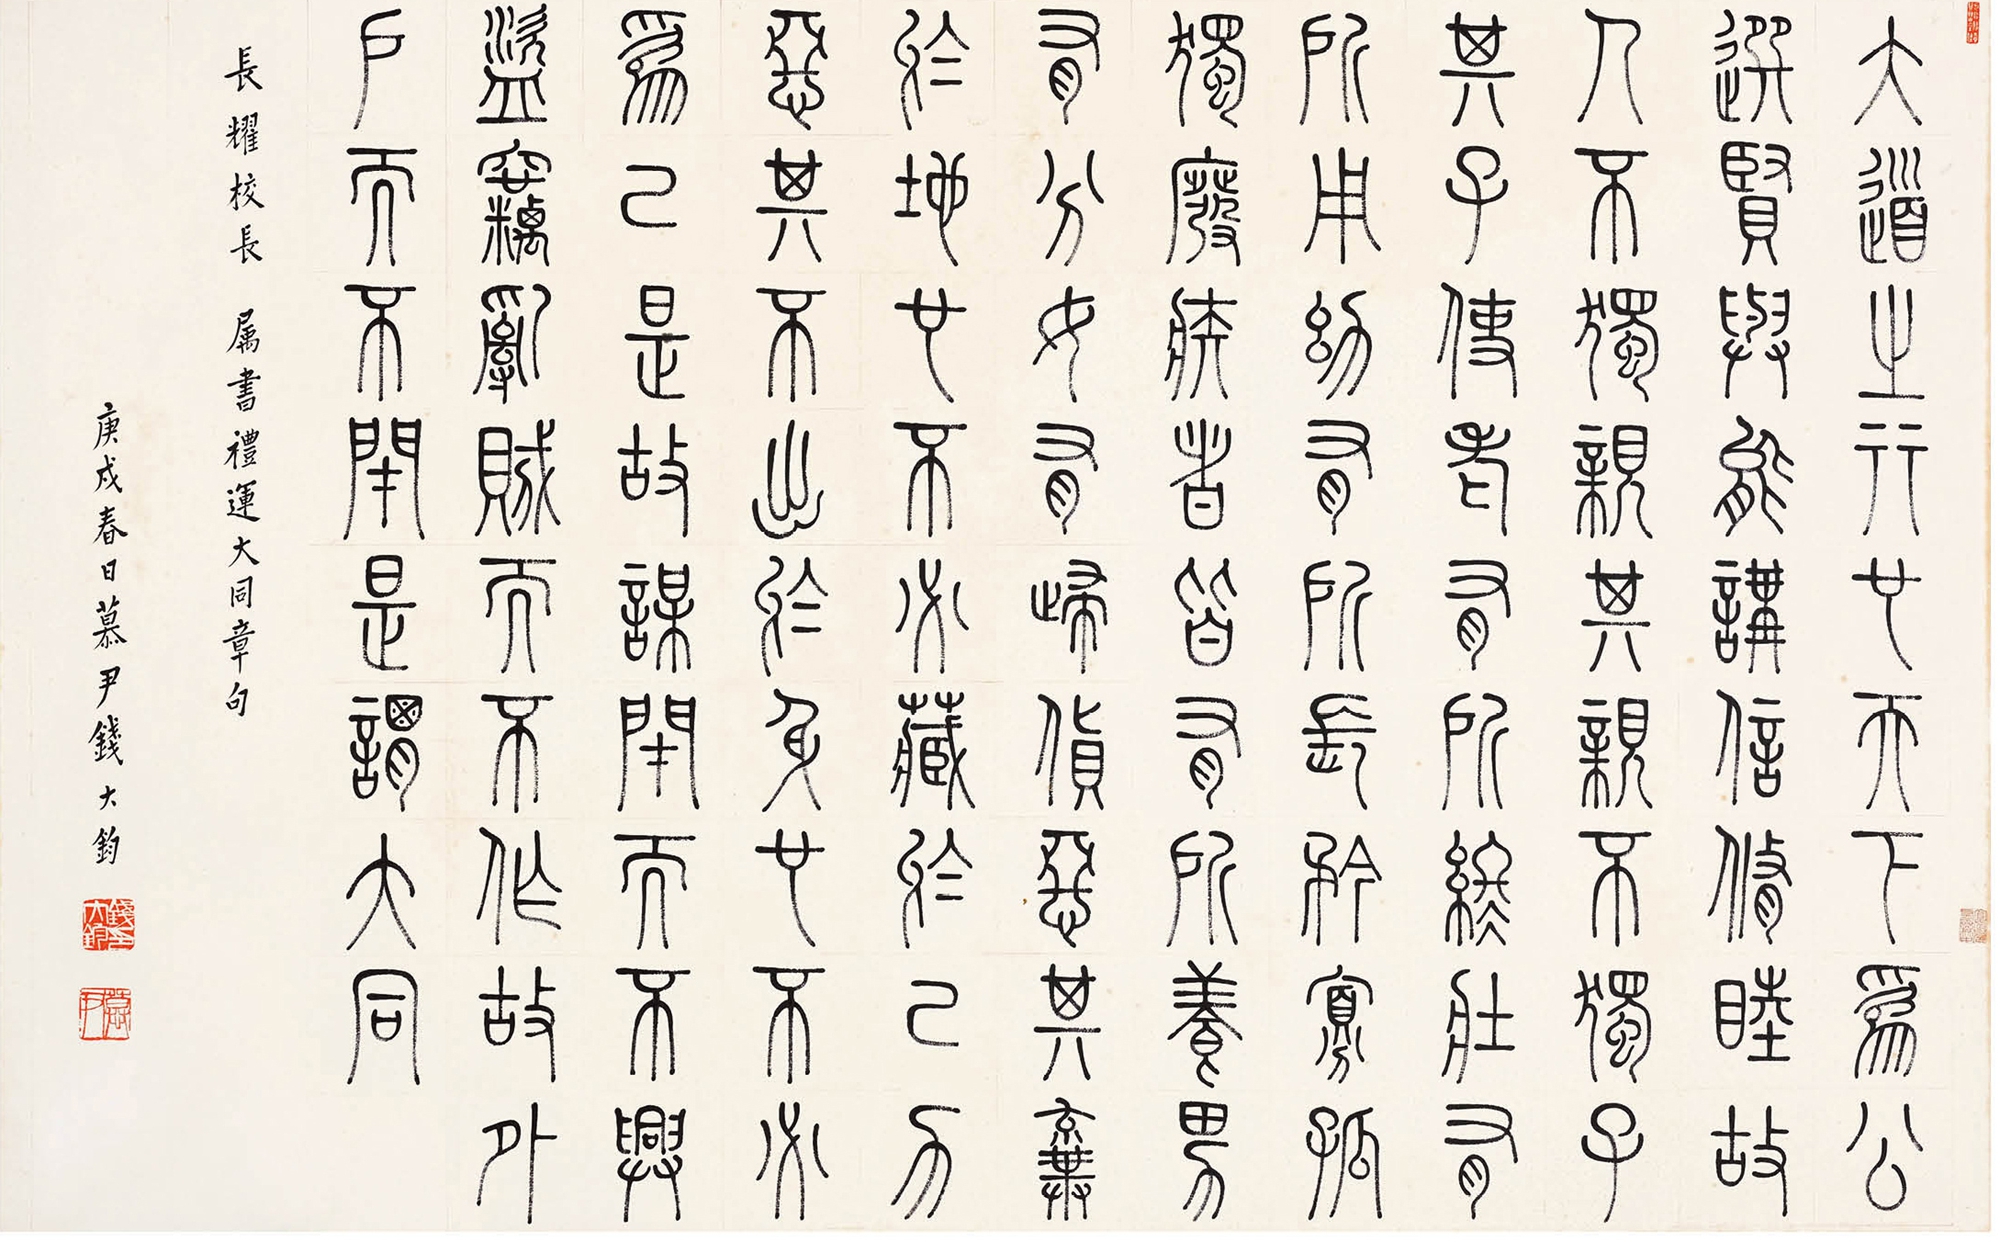 大道之行也天下爲公
選賢與能講信脩睦故
人不獨親其親不獨子
其子使老有所終壯有
所用幼有所長矜寡孤
獨廢疾者皆有所養男
有分女有歸貨惡其棄
於地也不必藏於己力
惡其不出於身也不必
爲己是故謀閉而不興
盜竊亂賊而不作故外
戶而不閉是謂大同
長耀校長 属書禮運大同章句
庚戌春日慕尹錢大鈞
錢大鈞印
慕尹